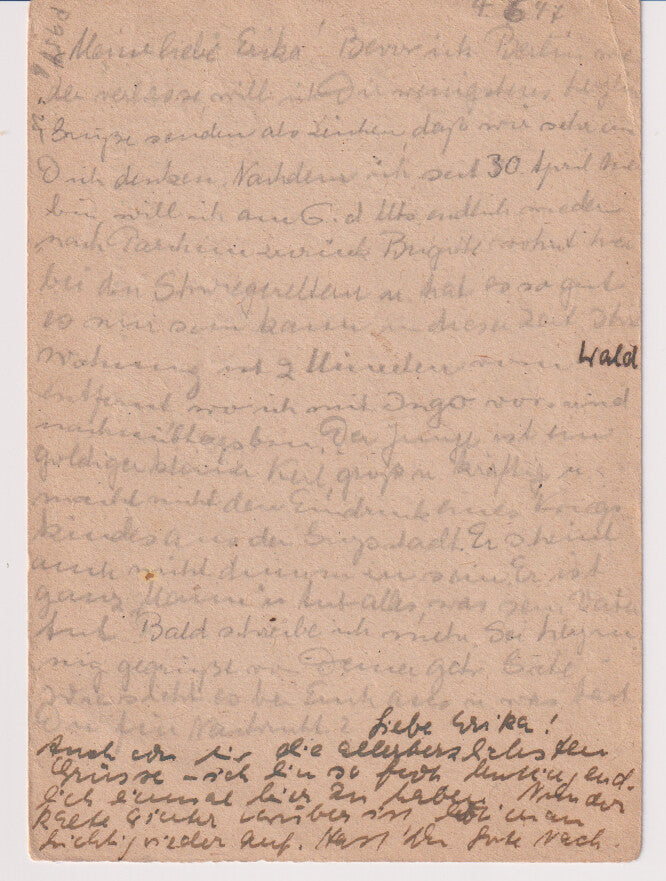 4 6 47
Meine liebe Erika! Bevor ich Berlin wie
der verlasse, will ich Dir wenigstens herzl.
Grüsse senden als Zeichen, daß wir sehr an
Dich denken. Nachdem ich seit 30 April hier
bin, will ich am 6. d Mts endlich wieder
nach Parchim zurück. Brigitte wohnt hier
bei den Schwiegereltern u hat es so gut
es nur sein kann in dieser Zeit. Ihre
Wohnung ist 2 Minuten vom Wald
entfernt wo ich mit Ingo vor- und
nachmittags bin. Der Junge ist ein
goldiger kleiner Kerl, groß u kräftig u
macht nicht den Eindruck eines Kriegs
kindes aus der Großstadt. Er scheint
auch nicht dumm zu sein. Er ist
ganz u tut alles, was sein Vater
tut. Bald schreibe ich mehr. Sei herzin
nig gegrüßt von Deiner
Wie sieht es bei Euch aus u was
Nachricht?
Liebe Erika!
Auch von mir die allerherzlichsten
Grüsse - ich bin so froh end-
lich einmal hier zu haben. Nun der
kalte Winter vorüber ist man
richtig wieder auf. Hast Du